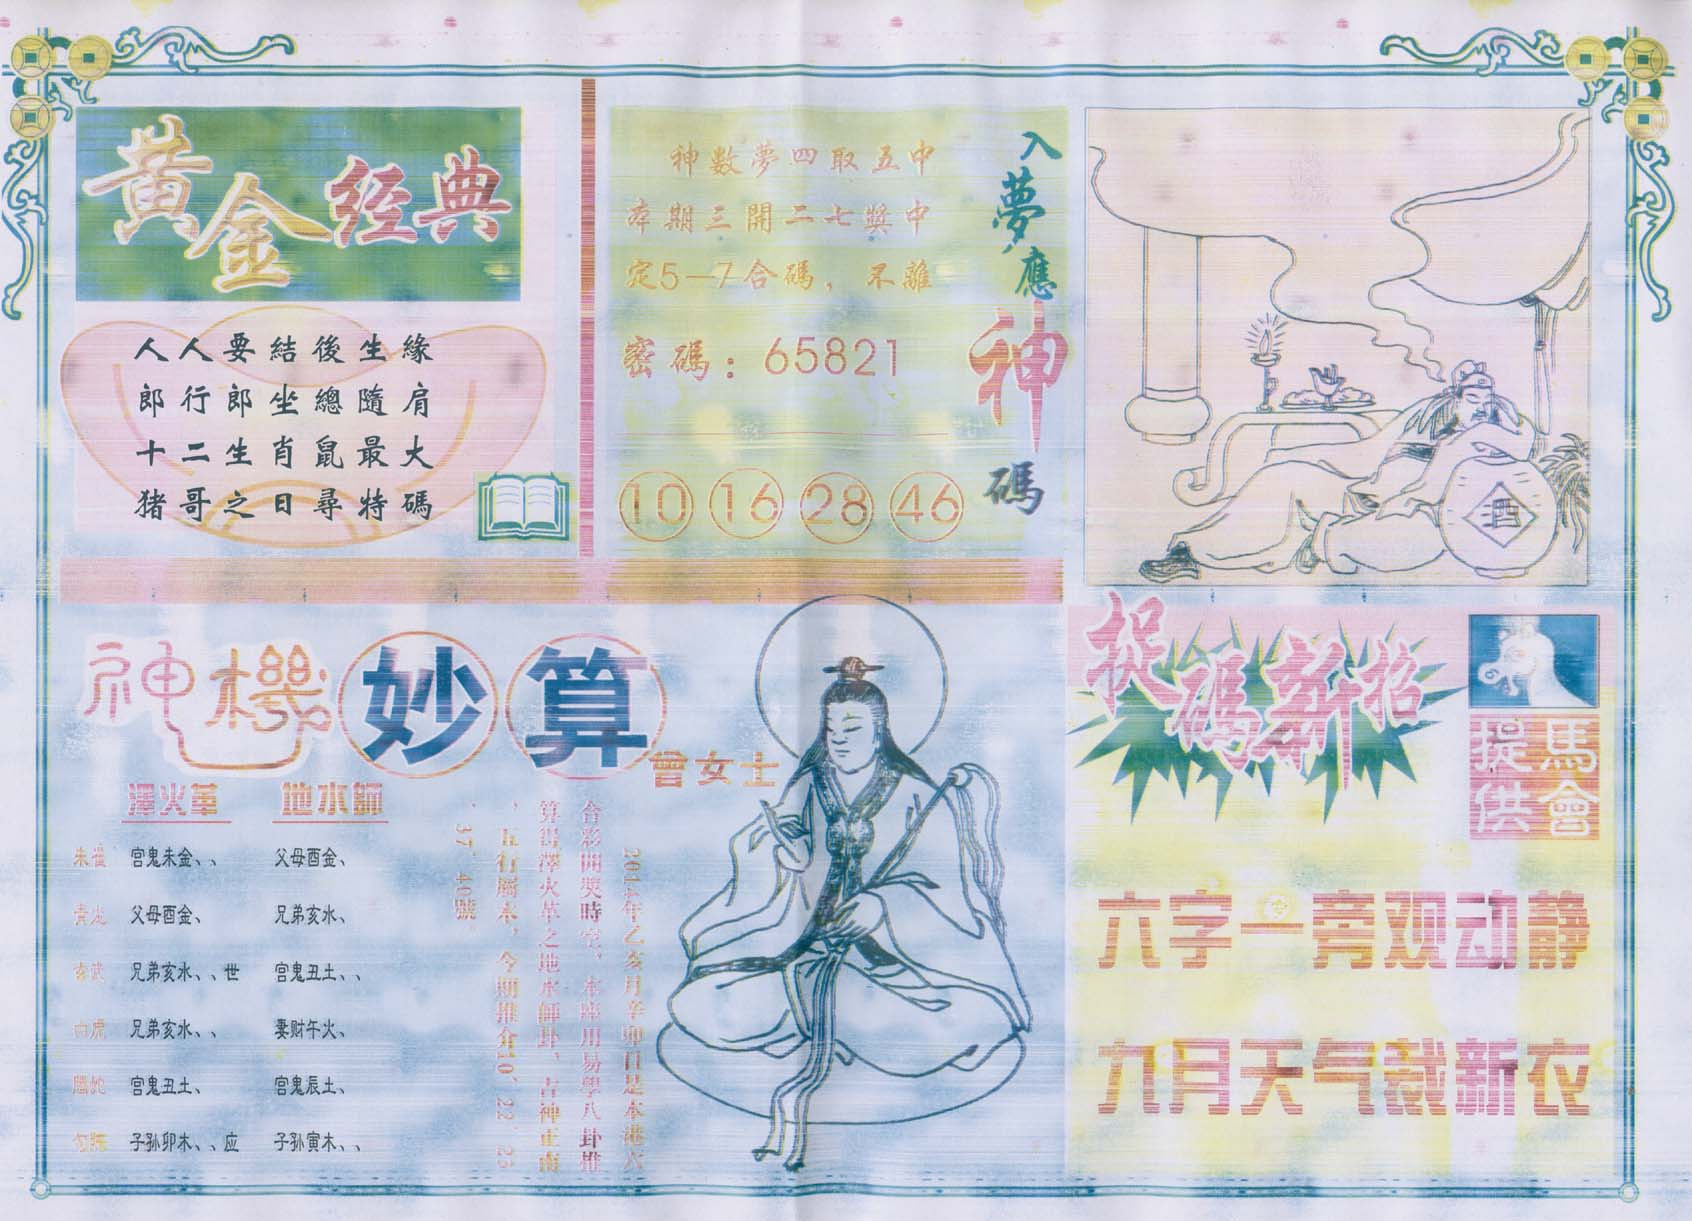 黃金经典
人人要結後生緣
郎行郎坐總隨肩
十二生肖鼠最大
猪哥之日尋特碼
神數夢四取五中
本期三開二七獎中
定5—7合碼，不離
密碼：65821
10 16 28 46
入夢應神碼
酒
神機妙算
曾女士
澤火革 地水師
朱雀 官鬼未金、、 父母酉金、
青龙 父母酉金、 兄弟亥水、
玄武 兄弟亥水、、世 官鬼丑土、、
白虎 兄弟亥水、、 妻财午火、
騰蛇 官鬼丑土、 官鬼辰土、
勾陈 子孙卯木、、应 子孙寅木、、
2014年乙亥月辛卯日是本港六
合彩開獎時空、本座用易學八卦推
算得澤火革之地水師卦、吉神正南
、五行屬水，今期推介10、22、25
、37、40號、
捉碼新招
馬會
捉供
六字一旁观动静
九月天气裁新衣